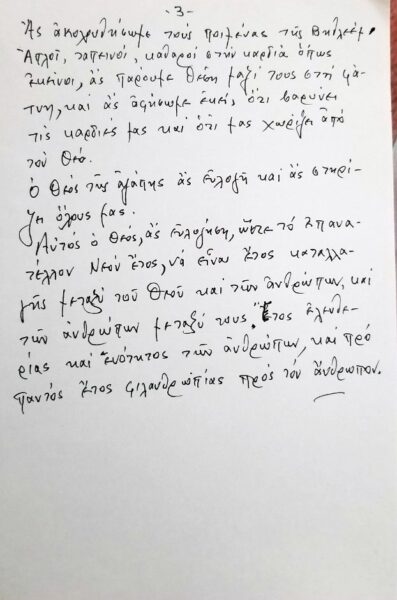 -3-
Ἄς ἀκολουθήσωμε τούς ποιμένας τῆς Βηθλεέμ.
Ἁπλοῖ, ταπεινοί, καθαροί στήν καρδιά ὅπως
ἐκεῖνοι, ἄς πάρουμε θέση μαζί τους στή φά-
τνη, καί ἄς ἀφήσωμε ἐκεῖ, ὅ,τι βαρύνει
τίς καρδιές μας καί ὅ,τι μᾶς χωρίζει ἀπό
τόν Θεό.
Ὁ Θεός τῆς ἀγάπης ἄς εὐλογῇ καί ἄς στηρί-
ζῃ ὅλους μας.
Αὐτός ὁ Θεός, ἄς εὐλογήσῃ, ὥστε τό ἐπανα-
τέλλον Νέον Ἔτος, νά εἶναι ἔτος καταλλα-
γῆς μεταξύ τοῦ Θεοῦ καί τῶν ἀνθρώπων, καί
τῶν ἀνθρώπων μεταξύ τους. Ἔτος ἐλευθε-
ρίας καί ἑνότητος τῶν ἀνθρώπων, καί πρό
παντός ἔτος φιλανθρωπίας πρός τόν ἄνθρωπον.